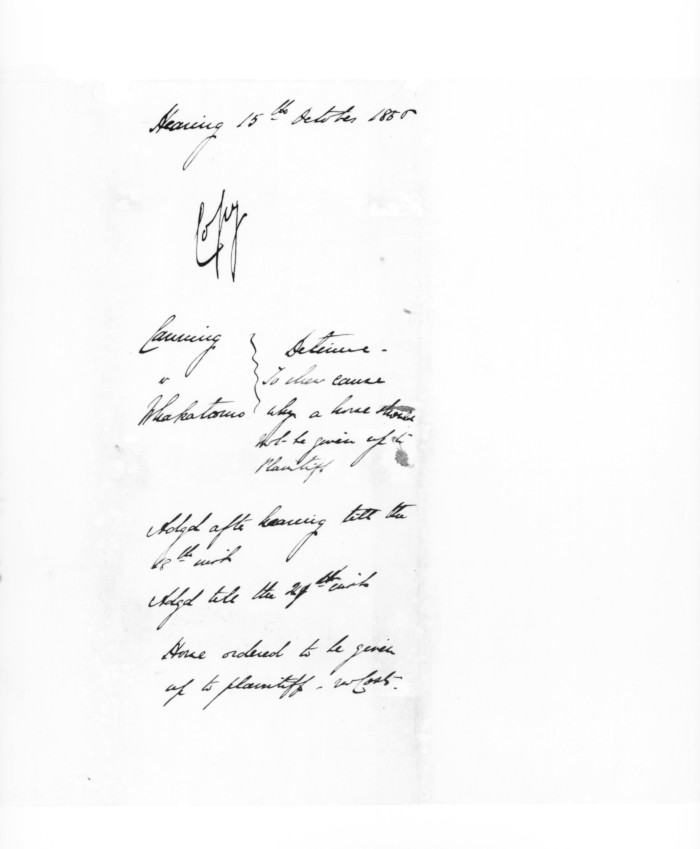 Hearing 15th October 1850
Copy
Canning
v
Whakatomo
Detinue -
To shew cause
why a horse should
not be given up to
Plaintiff
Adgd after hearing till the
18th inst
Adgd till the 29th inst
Horse ordered to be given
up to plaintiff - no Costs.